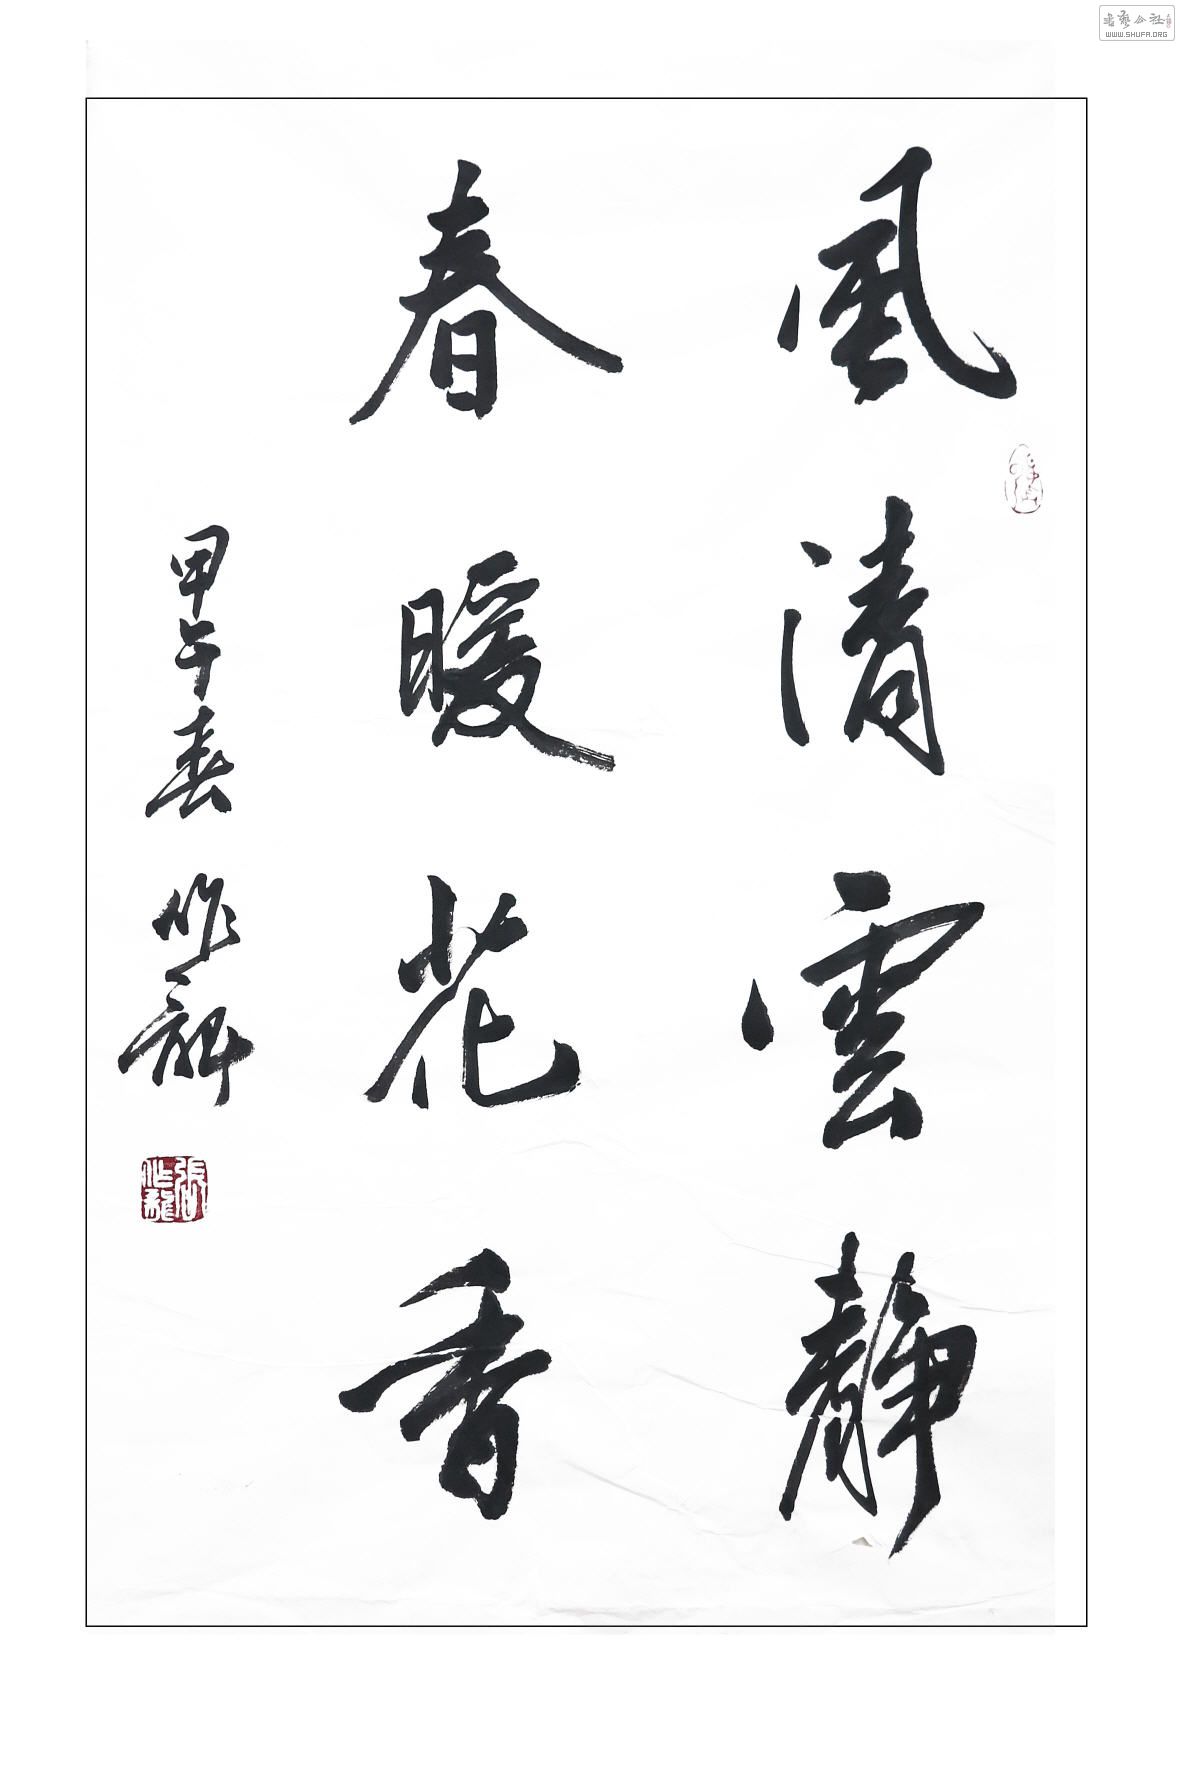 風清雲静
春暖花香
甲午春 作龍
張作龍
書藝公社
WWW.SHUFA.ORG